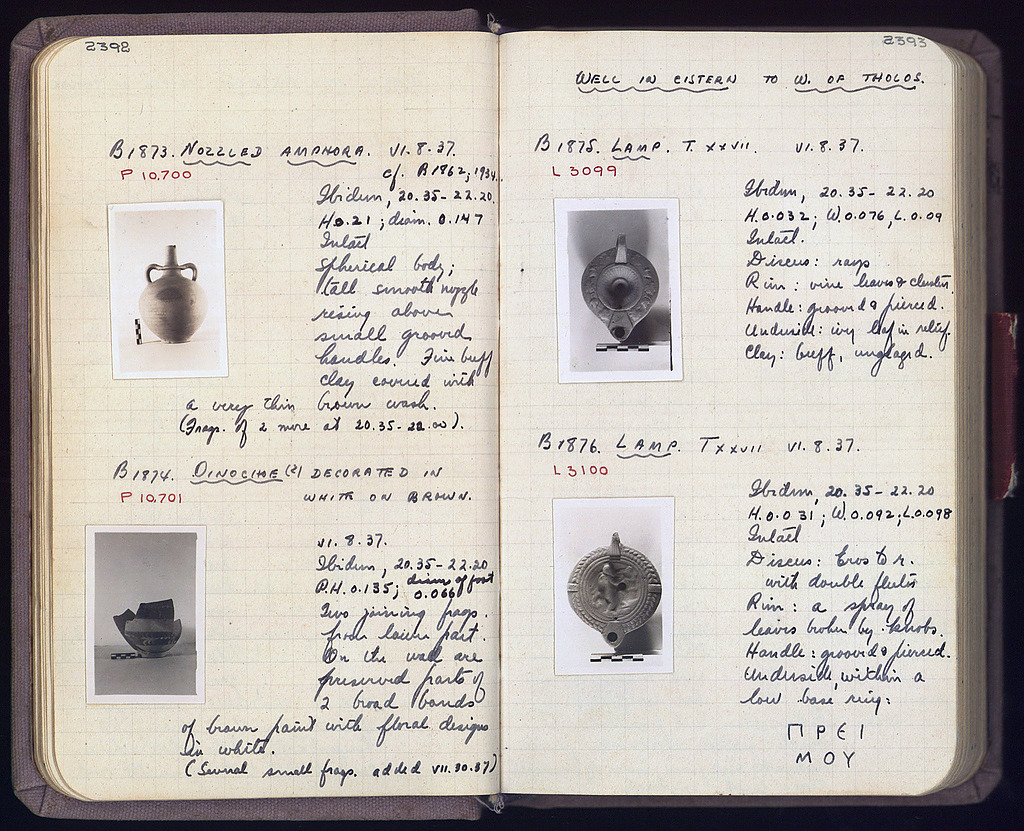 2392
B1873. NOZZLED AMPHORA. VI.8.37.
P 10,700
cf. B1862; 1934.
Ibidem, 20.35-22.20.
H.0.21; diam. 0.147
Intact
Spherical body;
tall smooth nozzle
rising above
small grooved
handles. Fine buff
clay covered with
a very thin brown wash.
(Frags. of 2 more at 20.35-22.00).
B1874. OINOCHOE (?) DECORATED IN
P 10,701
WHITE ON BROWN.
VI.8.37.
Ibidem, 20.35-22.20
P.H.0.135; diam of foot
0.066
Two joining frags.
from lower part.
On the wall are
preserved parts of
2 broad bands
of brown paint with floral designs
in white.
(Several small frags. added VII.30.37)
2393
WELL IN CISTERN TO W. OF THOLOS.
B1875. LAMP. T. XXVII. VI.8.37.
L 3099
Ibidem, 20.35-22.20
H.0.032; W.0.076, L.0.09
Intact.
Discus: rays
Rim: vine leaves & clusters.
Handle: grooved & pierced.
Underside: ivy leaf in relief.
Clay: buff, unglazed.
B1876. LAMP. T XXVII VI.8.37.
L 3100
Ibidem, 20.35-22.20
H.0.031; W.0.092; L.0.098
Intact
Discus: Eros to r.
with double flutes
Rim: a spray of
leaves broken by knobs.
Handle: grooved & pierced.
Underside, within a
low base ring:
ΠΡЄΙ
ΜΟΥ